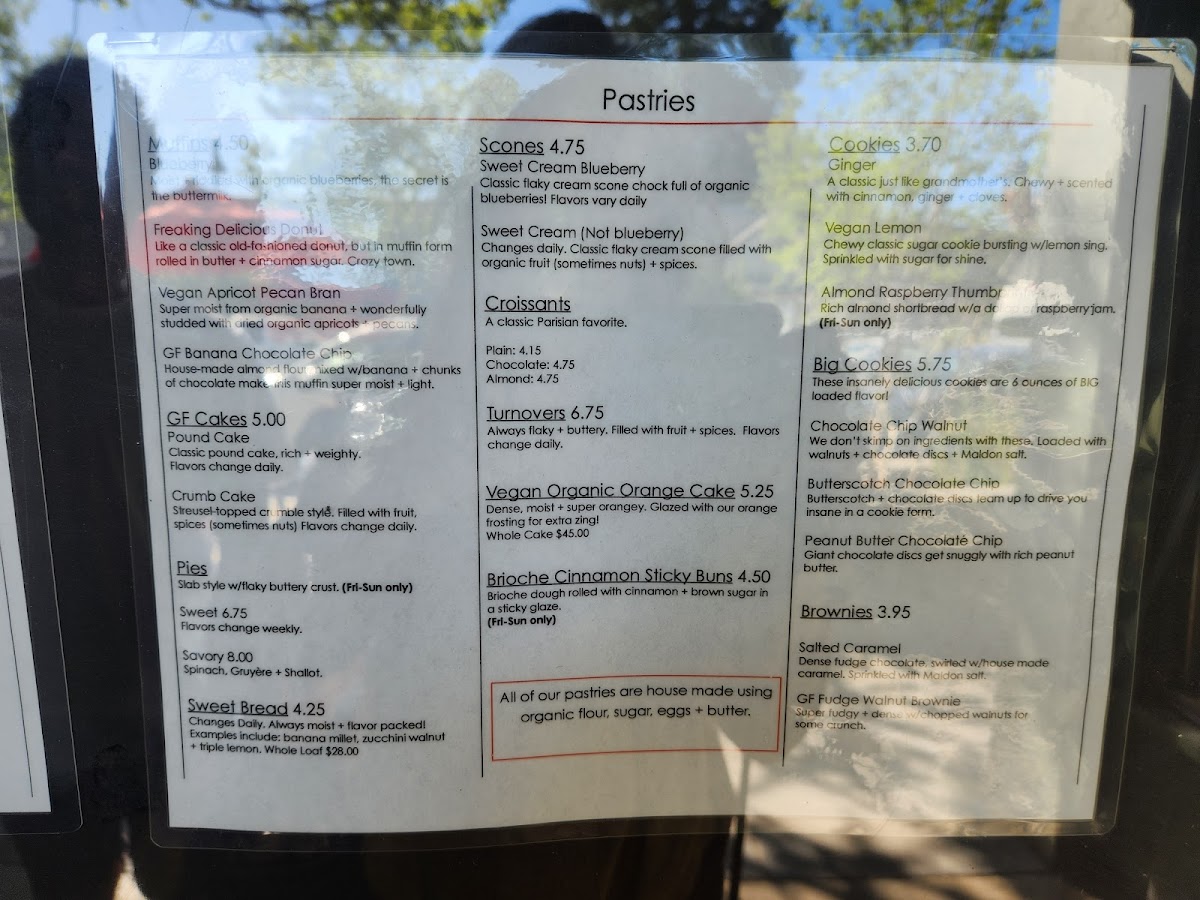 Pastries
Muffins 4.50
Blueberry
with organic blueberries, the secret is
the buttermilk.
Freaking Delicious Donut
Like a classic old-fashioned donut, but in muffin form
rolled in butter + cinnamon sugar. Crazy town.
Vegan Apricot Pecan Bran
Super moist from organic banana + wonderfully
studded with dried organic apricots + pecans.
GF Banana Chocolate Chip
House-made almond flour mixed w/banana + chunks
of chocolate make this muffin super moist + light.
GF Cakes 5.00
Pound Cake
Classic pound cake, rich + weighty.
Flavors change daily.
Crumb Cake
Streusel-topped crumble style. Filled with fruit,
spices (sometimes nuts) Flavors change daily.
Pies
Slab style w/flaky buttery crust. (Fri-Sun only)
Sweet 6.75
Flavors change weekly.
Savory 8.00
Spinach, Gruyère + Shallot.
Sweet Bread 4.25
Changes Daily. Always moist + flavor packed!
Examples include: banana millet, zucchini walnut
+ triple lemon. Whole Loaf $28.00
Scones 4.75
Sweet Cream Blueberry
Classic flaky cream scone chock full of organic
blueberries! Flavors vary daily
Sweet Cream (Not blueberry)
Changes daily. Classic flaky cream scone filled with
organic fruit (sometimes nuts) + spices.
Croissants
A classic Parisian favorite.
Plain: 4.15
Chocolate: 4.75
Almond: 4.75
Turnovers 6.75
Always flaky + buttery. Filled with fruit + spices. Flavors
change daily.
Vegan Organic Orange Cake 5.25
Dense, moist + super orangey. Glazed with our orange
frosting for extra zing!
Whole Cake $45.00
Brioche Cinnamon Sticky Buns 4.50
Brioche dough rolled with cinnamon + brown sugar in
a sticky glaze.
(Fri-Sun only)
All of our pastries are house made using
organic flour, sugar, eggs + butter.
Cookies 3.70
Ginger
A classic just like grandmother's. Chewy + scented
with cinnamon, ginger + cloves.
Vegan Lemon
Chewy classic sugar cookie bursting w/lemon sing.
Sprinkled with sugar for shine.
Almond Raspberry Thumbpr
Rich almond shortbread w/a of raspberry jam.
(Fri-Sun only)
Big Cookies 5.75
These insanely delicious cookies are 6 ounces of BIG
loaded flavor!
Chocolate Chip Walnut
We don't skimp on ingredients with these. Loaded with
walnuts + chocolate discs + Maldon salt.
Butterscotch Chocolate Chip
Butterscotch + chocolate discs team up to drive you
insane in a cookie form.
Peanut Butter Chocolate Chip
Giant chocolate discs get snuggly with rich peanut
butter.
Brownies 3.95
Salted Caramel
Dense fudge chocolate, swirled w/house made
caramel. Sprinkled with Maldon salt.
GF Fudge Walnut Brownie
Super fudgy + dense w/chopped walnuts for
some crunch.